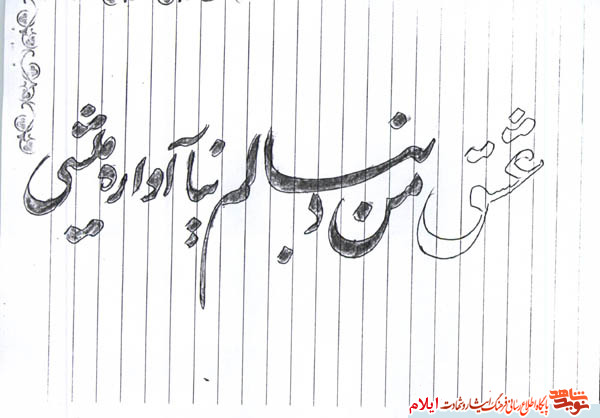 عشق من دنبالم نیا آواره میشی
نوید شاهد
پایگاه اطلاع رسانی فرهنگ ایثار و شهادت ایلام